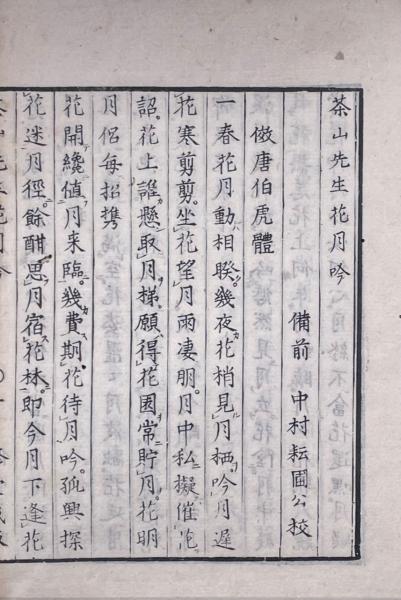 茶山先生花月吟
備前 中村耘圃公校
倣唐伯虎體
一春花月動相睽。幾夜花梢見月栖。吟月遲
花寒剪剪。坐花望月雨凄。月中私擬催花
詔。花上誰懸取月梯。願得花因常貯月。花明
月侶每招携
花開纔値月来臨。幾費期花待月吟。孤興探
花迷月徑。餘酣思月宿花林。即今月下逢花
茶山先生花月吟